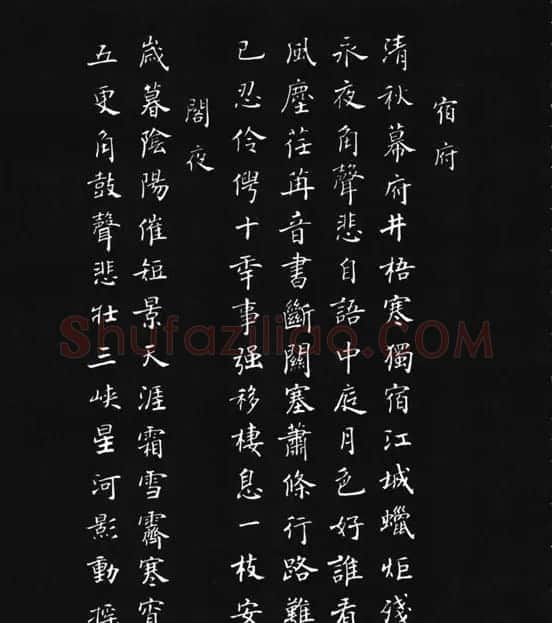 宿府
清秋幕府井梧寒獨宿江城蠟炬殘
永夜角聲悲自語中庭月色好誰看
風塵荏苒音書斷關塞蕭條行路難
已忍伶俜十年事强移棲息一枝安
閣夜
歳暮陰陽催短景天涯霜雪霽寒宵
五更角鼓聲悲壯三峽星河影動搖
Shufaziliao.COM